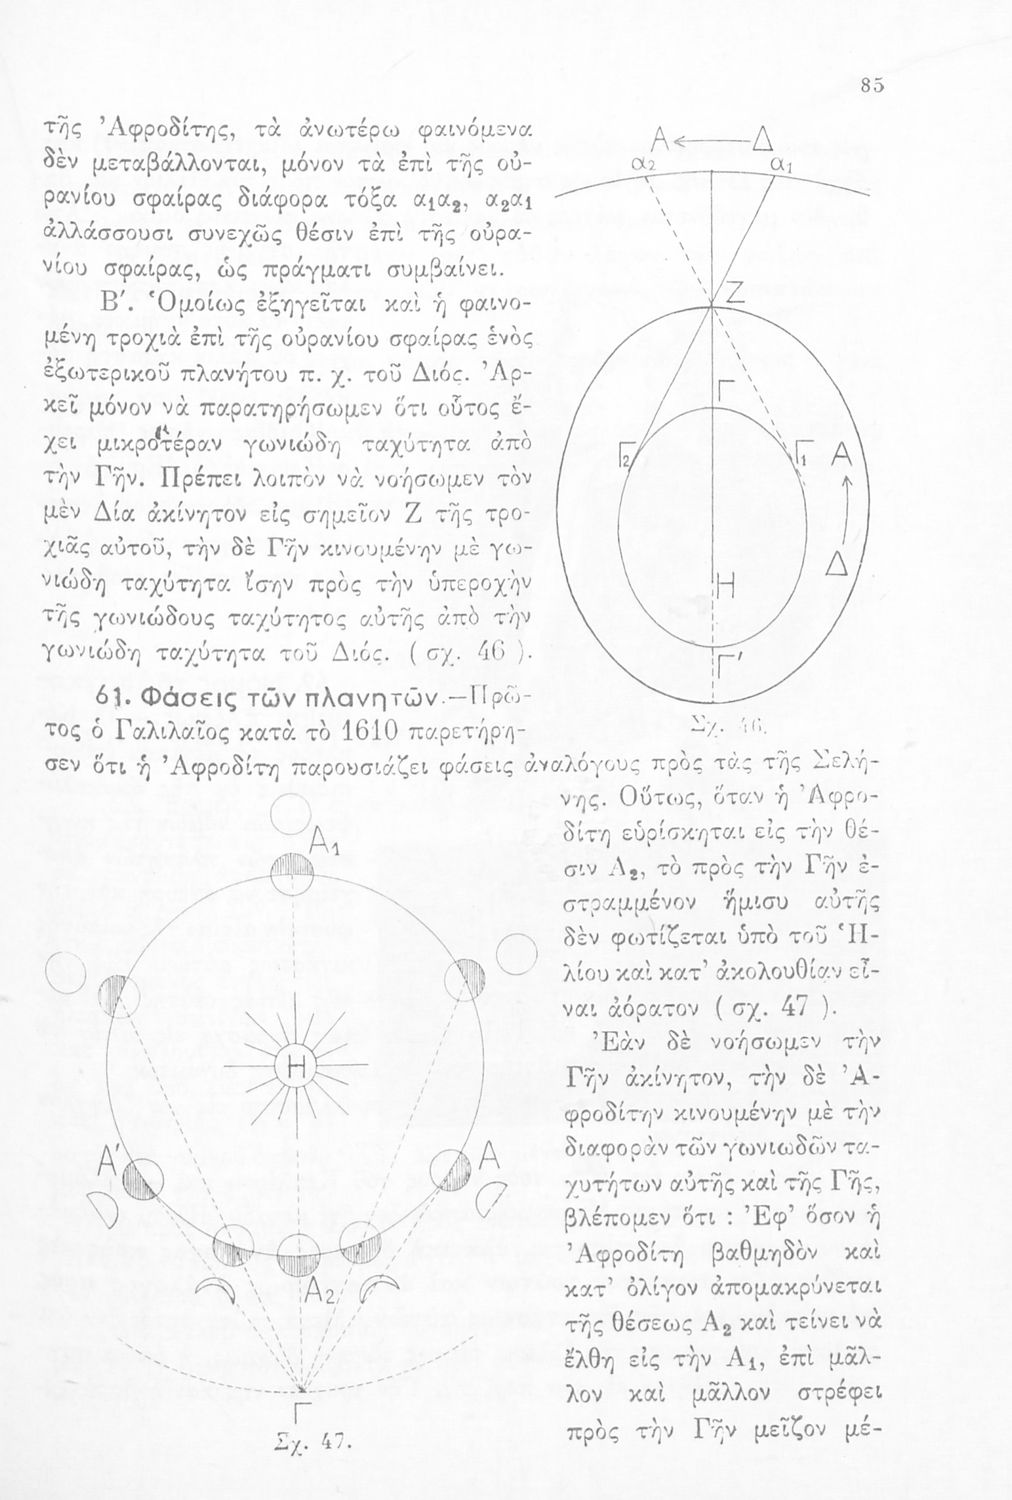 85
τῆς Ἀφροδίτης, τὰ ἀνωτέρω φαινόμενα
δὲν μεταβάλλονται, μόνον τὰ ἐπὶ τῆς οὐ-
ρανίου σφαίρας διάφορα τόξα α₁α₂, α₂α₁
ἀλλάσσουσι συνεχῶς θέσιν ἐπὶ τῆς οὐρα-
νίου σφαίρας, ὡς πράγματι συμβαίνει.
Β′. Ὁμοίως ἐξηγεῖται καὶ ἡ φαινο-
μένη τροχιὰ ἐπὶ τῆς οὐρανίου σφαίρας ἑνὸς
ἐξωτερικοῦ πλανήτου π. χ. τοῦ Διός. Ἀρ-
κεῖ μόνον νὰ παρατηρήσωμεν ὅτι οὗτος ἔ-
χει μικροτέραν γωνιώδη ταχύτητα ἀπὸ
τὴν Γῆν. Πρέπει λοιπὸν νὰ νοήσωμεν τὸν
μὲν Δία ἀκίνητον εἰς σημεῖον Ζ τῆς τρο-
χιᾶς αὐτοῦ, τὴν δὲ Γῆν κινουμένην μὲ γω-
νιώδη ταχύτητα ἴσην πρὸς τὴν ὑπεροχὴν
τῆς γωνιώδους ταχύτητος αὐτῆς ἀπὸ τὴν
γωνιώδη ταχύτητα τοῦ Διός. ( σχ. 46 ).
Α Δ
α₂ α₁
Ζ
Γ
Γ₂ Γ₁ Α
Δ
Η
Γ′
Σχ. 46.
61. Φάσεις τῶν πλανητῶν.—Πρῶ-
τος ὁ Γαλιλαῖος κατὰ τὸ 1610 παρετήρη-
σεν ὅτι ἡ Ἀφροδίτη παρουσιάζει φάσεις ἀναλόγους πρὸς τὰς τῆς Σελή-
νης. Οὕτως, ὅταν ἡ Ἀφρο-
δίτη εὑρίσκηται εἰς τὴν θέ-
σιν Α₂, τὸ πρὸς τὴν Γῆν ἐ-
στραμμένον ἥμισυ αὐτῆς
δὲν φωτίζεται ὑπὸ τοῦ Ἡ-
λίου καὶ κατ’ ἀκολουθίαν εἶ-
ναι ἀόρατον ( σχ. 47 ).
Ἐὰν δὲ νοήσωμεν τὴν
Γῆν ἀκίνητον, τὴν δὲ Ἀ-
φροδίτην κινουμένην μὲ τὴν
διαφορὰν τῶν γωνιωδῶν τα-
χυτήτων αὐτῆς καὶ τῆς Γῆς,
βλέπομεν ὅτι : Ἐφ’ ὅσον ἡ
Ἀφροδίτη βαθμηδὸν καὶ
κατ’ ὀλίγον ἀπομακρύνεται
τῆς θέσεως Α₂ καὶ τείνει νὰ
ἔλθῃ εἰς τὴν Α₁, ἐπὶ μᾶλ-
λον καὶ μᾶλλον στρέφει
πρὸς τὴν Γῆν μεῖζον μέ-
Α₁
Η
Α′ Α
Α₂
Γ
Σχ. 47.